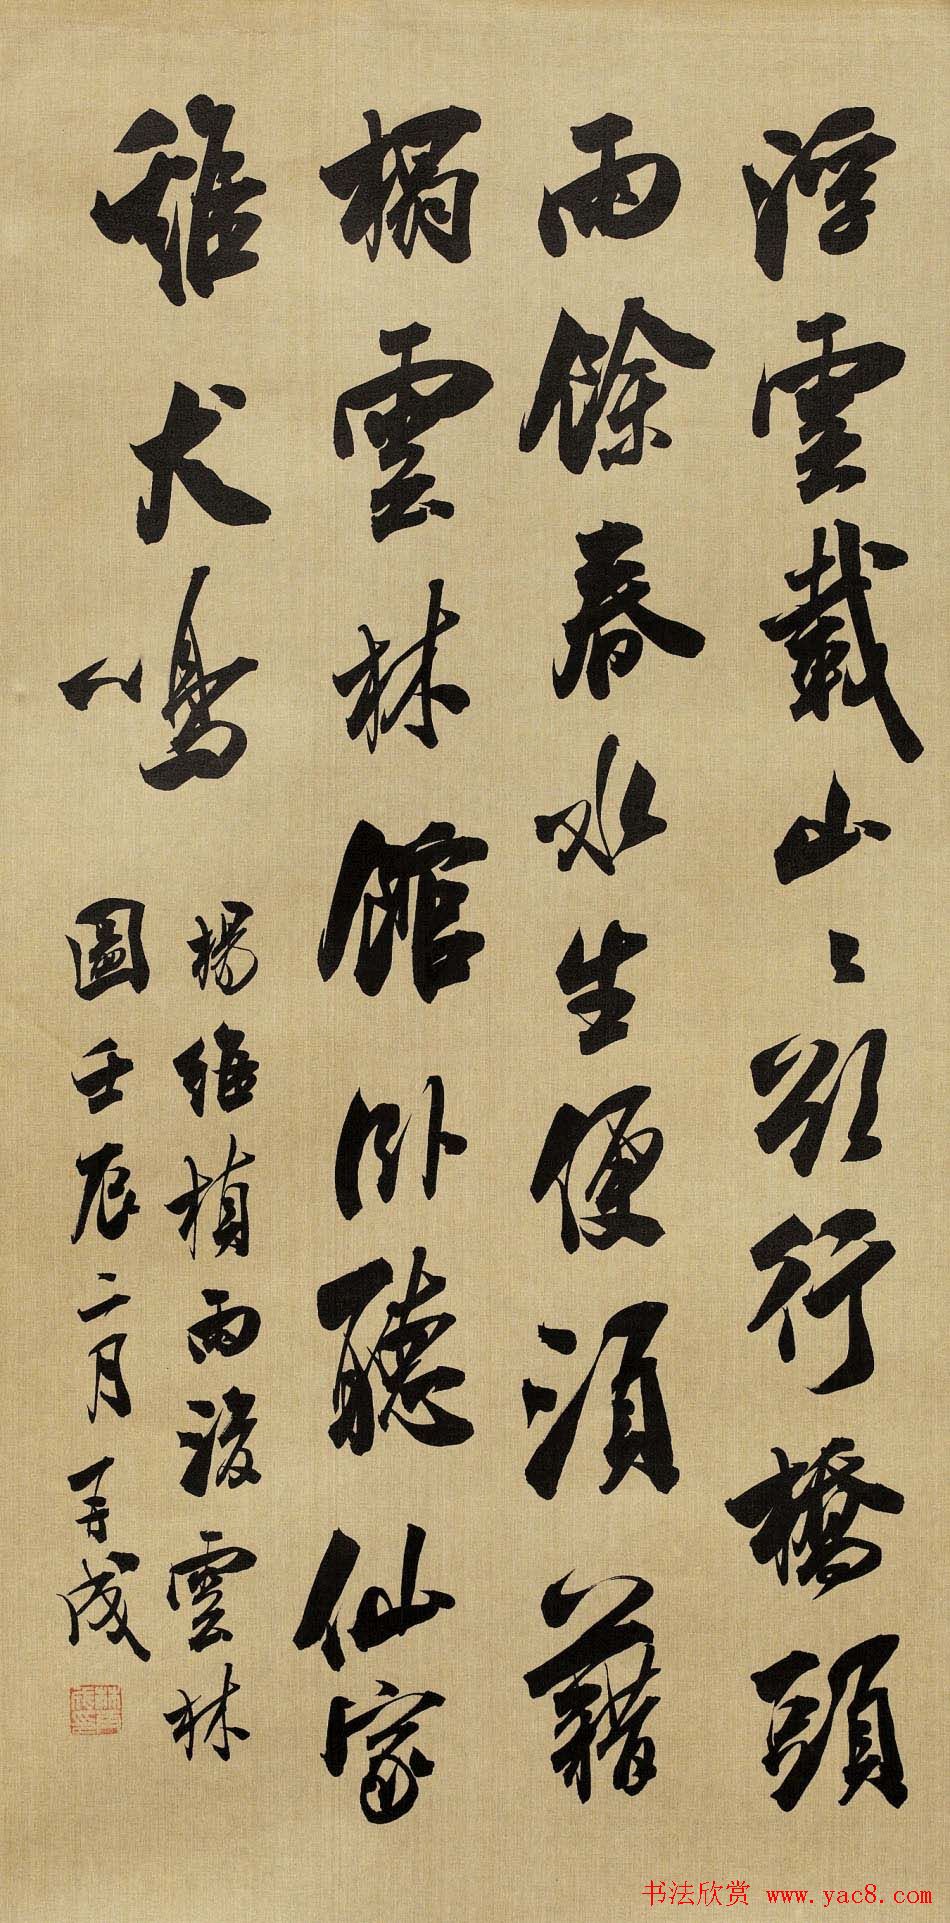 浮雲載山〻欲行橋頭
雨餘春水生便須藉
榻雲林館卧聽仙家
雞犬鳴
楊維楨雨後雲林
圖壬辰二月成
书法欣赏 www.yac8.com